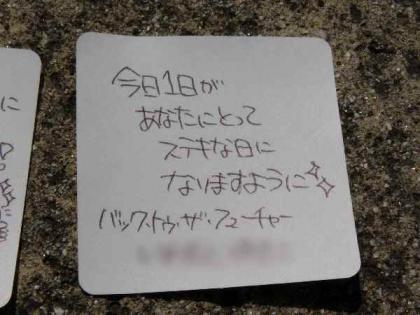 今日1日が
あなたにとって
ステキな日に
なりますように
バック・トゥ・ザ・フューチャー
に